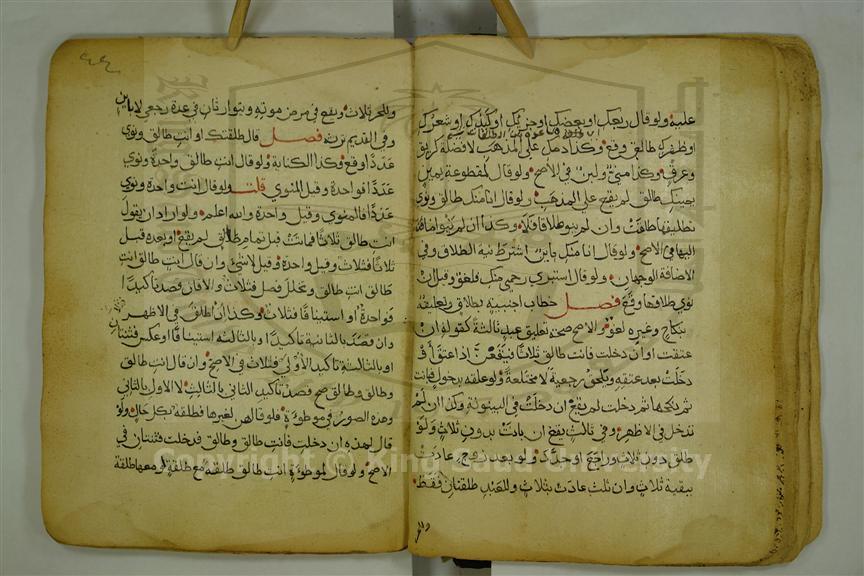 عليه ولو قال ربعك او بعضك او جزءك او كبدك او شعرك
او ظفرك طالق وقع وكذا دمك على المذهب لا فضلة كريق
وعرق وكذا مني ولبن في الاصح ولو قال لمقطوعة يمين
يمينك طالق لم يقع على المذهب ولو قال انا منك طالق ونوى
تطليقها طلقت وان لم ينو طلاقا فلا وكذا ان لم ينو اضافة
اليها في الاصح ولو قال انا منك باين اشترط نية الطلاق وفي
الاضافة الوجهان ولو قال استبري رحمي منك فلغو وقيل ان
نوى طلاقها وقع فصل خطاب اجنبية بطلاق وتعليقه
بنكاح وغيره لغو والاصح صحة تعليق عبد ثالثة كقوله ان
عتقت او ان دخلت فانت طالق ثلاثا فيقعن اذا عتق او
دخلت بعد عتقه ويلحق رجعية لا مختلعة ولو علقه بدخول فبانت
ثم نكحها ثم دخلت لم يقع ان دخلت في البينونة وكذا ان لم
تدخل في الاظهر وفي ثالث يقع ان بانت بدون ثلاث ولو
طلق دون ثلاث وراجع او جدد ولو بعد زوج عادت
ببقية ثلاث وان ثلث عادت بثلاث وللعبد طلقتان فقط
وللحر
وللحر ثلاث ويقع في مرض موته ويتوارثان في عدة رجعي لا باين
وفي القديم ترثه فصل قال طلقتك او انت طالق ونوى
عددا وقع وكذا الكناية ولو قال انت طالق واحدة ونوى
عددا فواحدة وقيل المنوي قلت ولو قال انت واحدة ونوى
عددا فالمنوي وقيل واحدة والله اعلم ولو اراد ان يقول
انت طالق ثلاثا فماتت قبل تمام طالق لم يقع او بعده قبل
ثلاثا فثلاث وقيل واحدة وقيل لا شيء وان قال انت طالق انت
طالق انت طالق وتخلل فصل فثلاث والا فان قصد تاكيدا
فواحدة او استينافا فثلاث وكذا ان اطلق في الاظهر
وان قصد بالثانية تاكيدا وبالثالثة استينافا او عكس فثنتان
او بالثالثة تاكيد الاولى فثلاث في الاصح وان قال انت طالق
وطالق وطالق صح قصد تاكيد الثاني بالثالث لا الاول بالثاني
وهذه الصور في موطوءة فلو قالهن لغيرها فطلقة بكل حال ولو
قال لهذه ان دخلت فانت طالق وطالق فدخلت فثنتان في
الاصح ولو قال لموطوءة انت طالق طلقة مع طلقة او معها طلقة
Copyright © King Saud University